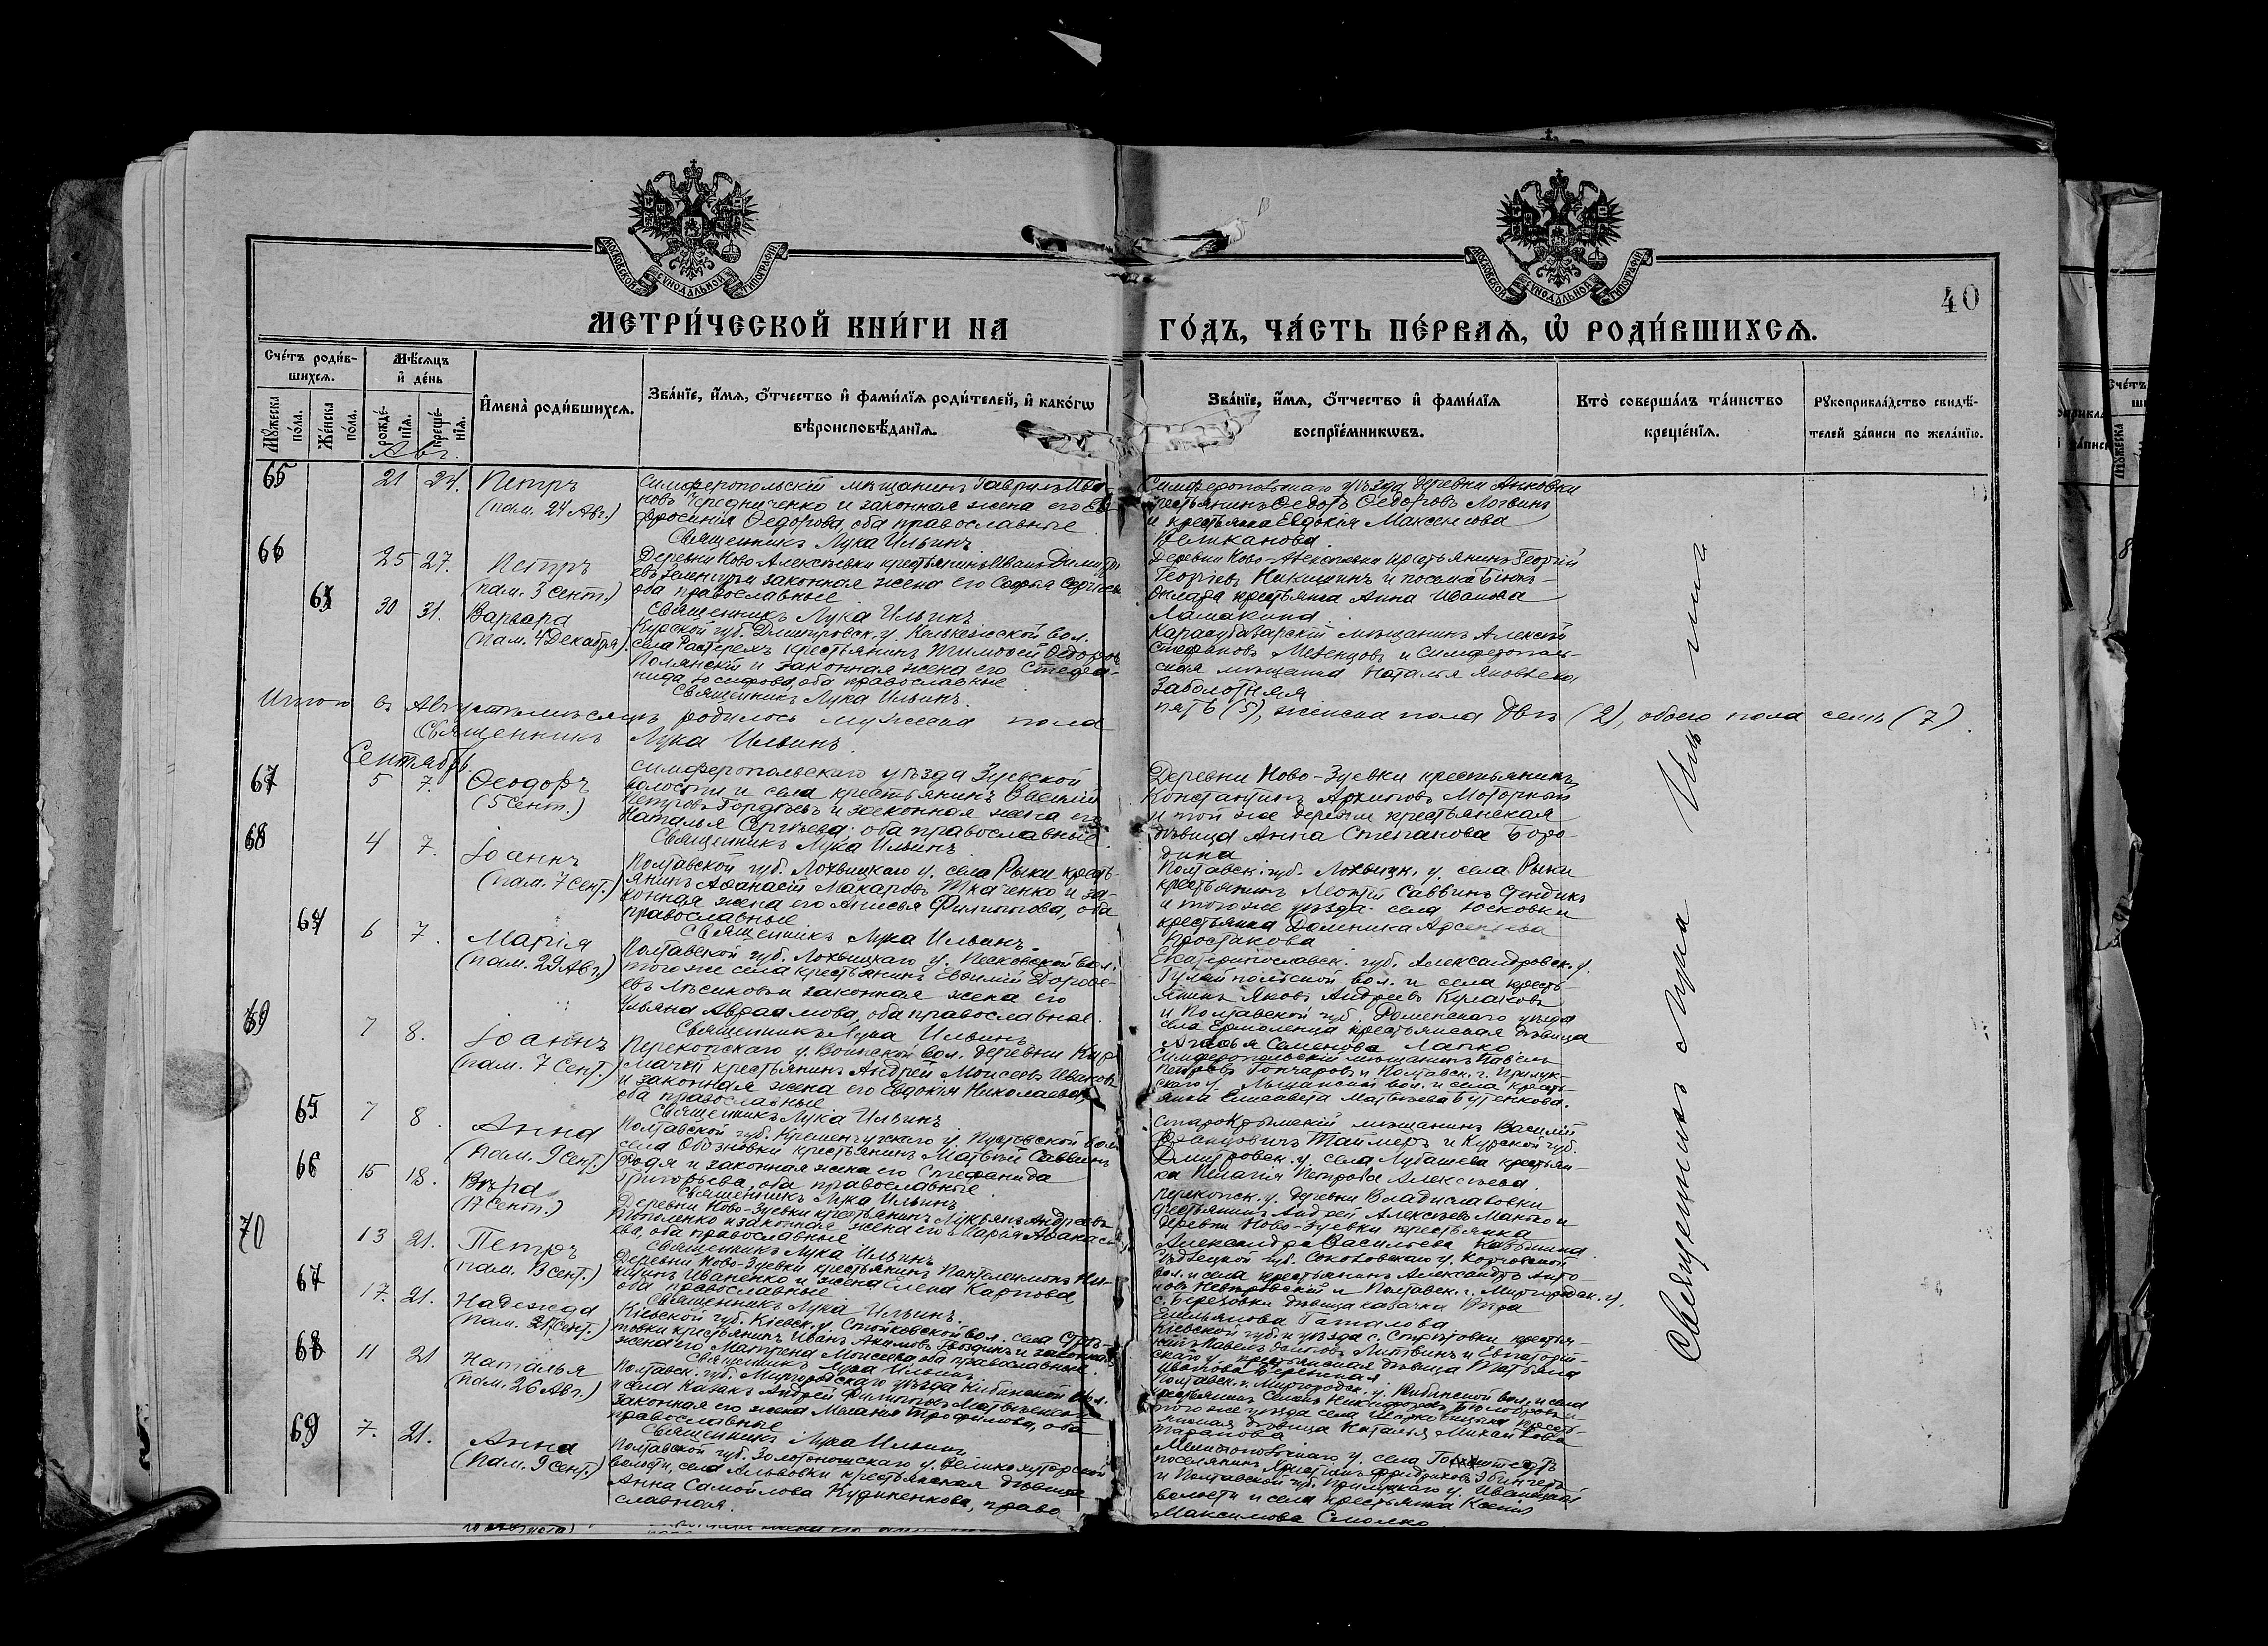 МОСКОВСКОЙ СѴНОДАЛЬНОЙ ТИПОГРАФІИ
МОСКОВСКОЙ СѴНОДАЛЬНОЙ ТИПОГРАФІИ
40
МЕТРИ́ЧЕСКОЙ КНИ́ГИ НА ГО́ДЪ, ЧА́СТЬ ПЕ́РВАѦ, Ѽ РОДИ́ВШИХСѦ.
Сче́тъ роди́в-
шихсѧ.
Мѣ́сѧцъ
и҆ де́нь
Мꙋ́жеска
по́ла.
Же́нска
по́ла.
рожде́-
нїѧ.
креще́-
нїѧ.
И҆мена̀ роди́вшихсѧ.
Зва́нїе, и҆́мѧ, ѻ҆́тчество и҆ фами́лїѧ роди́телей, и҆ како́гѡ
вѣроисповѣ́данїѧ.
Зва́нїе, и҆́мѧ, ѻ҆́тчество и҆ фами́лїѧ
воспрїе́мникѡвъ.
Кто̀ соверша́лъ та́инство
креще́нїѧ.
Рꙋкоприкла́дство свидѣ́-
телей за́писи по жела́нїю.
Авг.
65 21 24. Петръ
(пам. 24 Авг.)
Симферопольскій мѣщанинъ Гавріилъ Ива-
новъ Чередниченко и законная жена его Ев-
фросинія Ѳедорова, оба православные
Священникъ Лука Ильинъ
Симферопольскаго уѣзда деревни
крестьянинъ Ѳедотъ Ѳедоровъ
и крестьянка Евдокія Максимова
Великанова.
66 25 27. Петръ
(пам. 3 сент.)
Деревни Ново-Алексѣевки крестьянинъ Иванъ
законная жена его Софья Сергѣева
оба православные
Священникъ Лука Ильинъ
Деревни Ново-Алексѣевки крестьянинъ Георгій
Георгіевъ Никишинъ и поселка
крестьянка Анна Иванова
Ламакина.
63 30 31. Варвара
(пам. 4 Декабря).
Курской губ. Дмитровск. у. вол.
села крестьянинъ Тимоѳей Ѳедоровъ
Полянскій и законная жена его Стефа-
нида Іосифова, оба православные
Священникъ Лука Ильинъ.
Карасубазарскій мѣщанинъ Алексѣй
Стефановъ Мезенцовъ и Симферополь-
ская мѣщанка Наталья Яковлева
Заболотняя
Итого въ Августѣ мѣсяцѣ родилось мужеска пола пять (5), женска пола двѣ (2), обоего пола семь (7).
Священникъ Лука Ильинъ.
Сентябрь.
67 5 7. Ѳеодоръ
(5 Сент.)
Симферопольскаго уѣзда Зуевской
волости и села крестьянинъ Василій
Петровъ Гордѣевъ и законная жена его
Наталья Сергѣева, оба православные.
Священникъ Лука Ильинъ
Деревни Ново-Зуевки крестьянинъ
Константинъ Архиповъ Моторный
и той же деревни крестьянская
дѣвица Анна Степанова Боро-
дина
68 4 7. Іоаннъ
(пам. 7 сент.)
Полтавской губ. Лохвицкаго у. села Рыки кресть-
янинъ Аѳанасій Макаровъ Ткаченко и за-
конная жена его Анисья Филиппова, оба
православные
Священникъ Лука Ильинъ.
Полтавск. губ. Лохвицк. у. села Рыки
крестьянинъ Саввинъ
и того же уѣзда села Юсковки
крестьянка Домника Арсентьева
Простакова
64 6 7. Марія
(пам. 29 Авг.)
Полтавской губ. Лохвицкаго у. Песковской вол.
того же села крестьянинъ Евѳимій Дороѳе-
евъ и законная жена его
Ульяна Авраамова, оба православные.
Священникъ Лука Ильинъ
Екатеринославск. губ. Александровск. у.
Гуляйпольской вол. и села кресть-
янинъ Яковъ Андреевъ Кулаковъ
и Полтавской губ. Роменскаго уѣзда
села крестьянская дѣвица
Семенова Лапко
69 7 8. Іоаннъ
(пам. 7 Сент.)
Перекопскаго у. Воинской вол. деревни
крестьянинъ Андрей Моисеевъ Ивановъ
и законная жена его Евдокія Николаева,
оба православные
Священникъ Лука Ильинъ
Симферопольскій мѣщанинъ Павелъ
Петровъ Гончаровъ и Полтавск. г. Прилук-
скаго у. вол. и села кресть-
янка Елисавета Матвѣева Бутенкова.
65 7 8. Анна
(пам. 9 сент.)
Полтавской губ. Кременчугскаго у. Пустовской вол.
села Обозновки крестьянинъ Матвѣй Саввинъ
и законная жена его Стефанида
Григорьева, оба православные.
Священникъ Лука Ильинъ
Старокрымскій мѣщанинъ Василій
Францовичъ Таймеръ и Курской губ.
Дмитровск. у. села Лубашева крестьян-
ка Пелагія Петрова Алексѣева.
66 15 18. Вѣра
(17 Сент.)
Деревни Ново-Зуевки крестьянинъ Лукьянъ Андреевъ
и законная жена его Марѳа Аѳанась-
ева, оба православные
Священникъ Лука Ильинъ
Перекопск. у. деревни Владиславовки
крестьянинъ Андрей Алексѣевъ Манько и
деревни Ново-Зуевки крестьянка
Александра Васильева
70 13 21. Петръ
(пам. сент.)
Деревни Ново-Зуевки крестьянинъ Пантелеимонъ
Иваненко и жена Елена Карпова,
оба православные
Священникъ Лука Ильинъ.
Сѣдлецкой губ. Соколовскаго у.
вол. и села крестьянинъ Александръ Анто-
новъ и Полтавск. г. Миргородск. у.
с. Березовки дѣвица казачка Вѣра
Емельянова Гаталова
67 17. 21. Надежда
(пам. 17 Сент.)
Кіевской губ. Кіевск. у. вол. села
крестьянинъ Иванъ Акимовъ Гвоздикъ и законная
жена его Матрена Моисеева, оба православные.
Священникъ Лука Ильинъ
Кіевской губ. и уѣзда с. крестья-
нинъ Павелъ Литвинъ и Евпаторій-
скаго у. крестьянская дѣвица Татьяна
Иванова
68 11 21 Наталья
(пам. 26 Авг.)
Полтавск. губ. Миргородскаго уѣзда Кибинской вол.
и села казакъ Андрей Филипповъ Матвѣенко и
законная его жена Меланія Трофимова, оба
православные
Священникъ Лука Ильинъ
Полтавск. г. Миргородск. у. Кибинской вол. и села
крестьянинъ Семенъ Никифоровъ
того же уѣзда села кресть-
янская дѣвица Наталья Михайлова
Таранова
69 7. 21. Анна
(пам. 9 сент.)
Полтавской губ. Золотоношскаго у. Великохуторской
волости, села Львовки крестьянская дѣвица
Анна Самойлова Кудименкова, право-
славная.
Мелитопольскаго у. села
поселянинъ Христіанъ Фридриховъ
и Полтавской губ. Прилукскаго у. Иваницкой
волости и села крестьянка Ксенія
Максимова Смолко.
Священникъ Лука Ильинъ